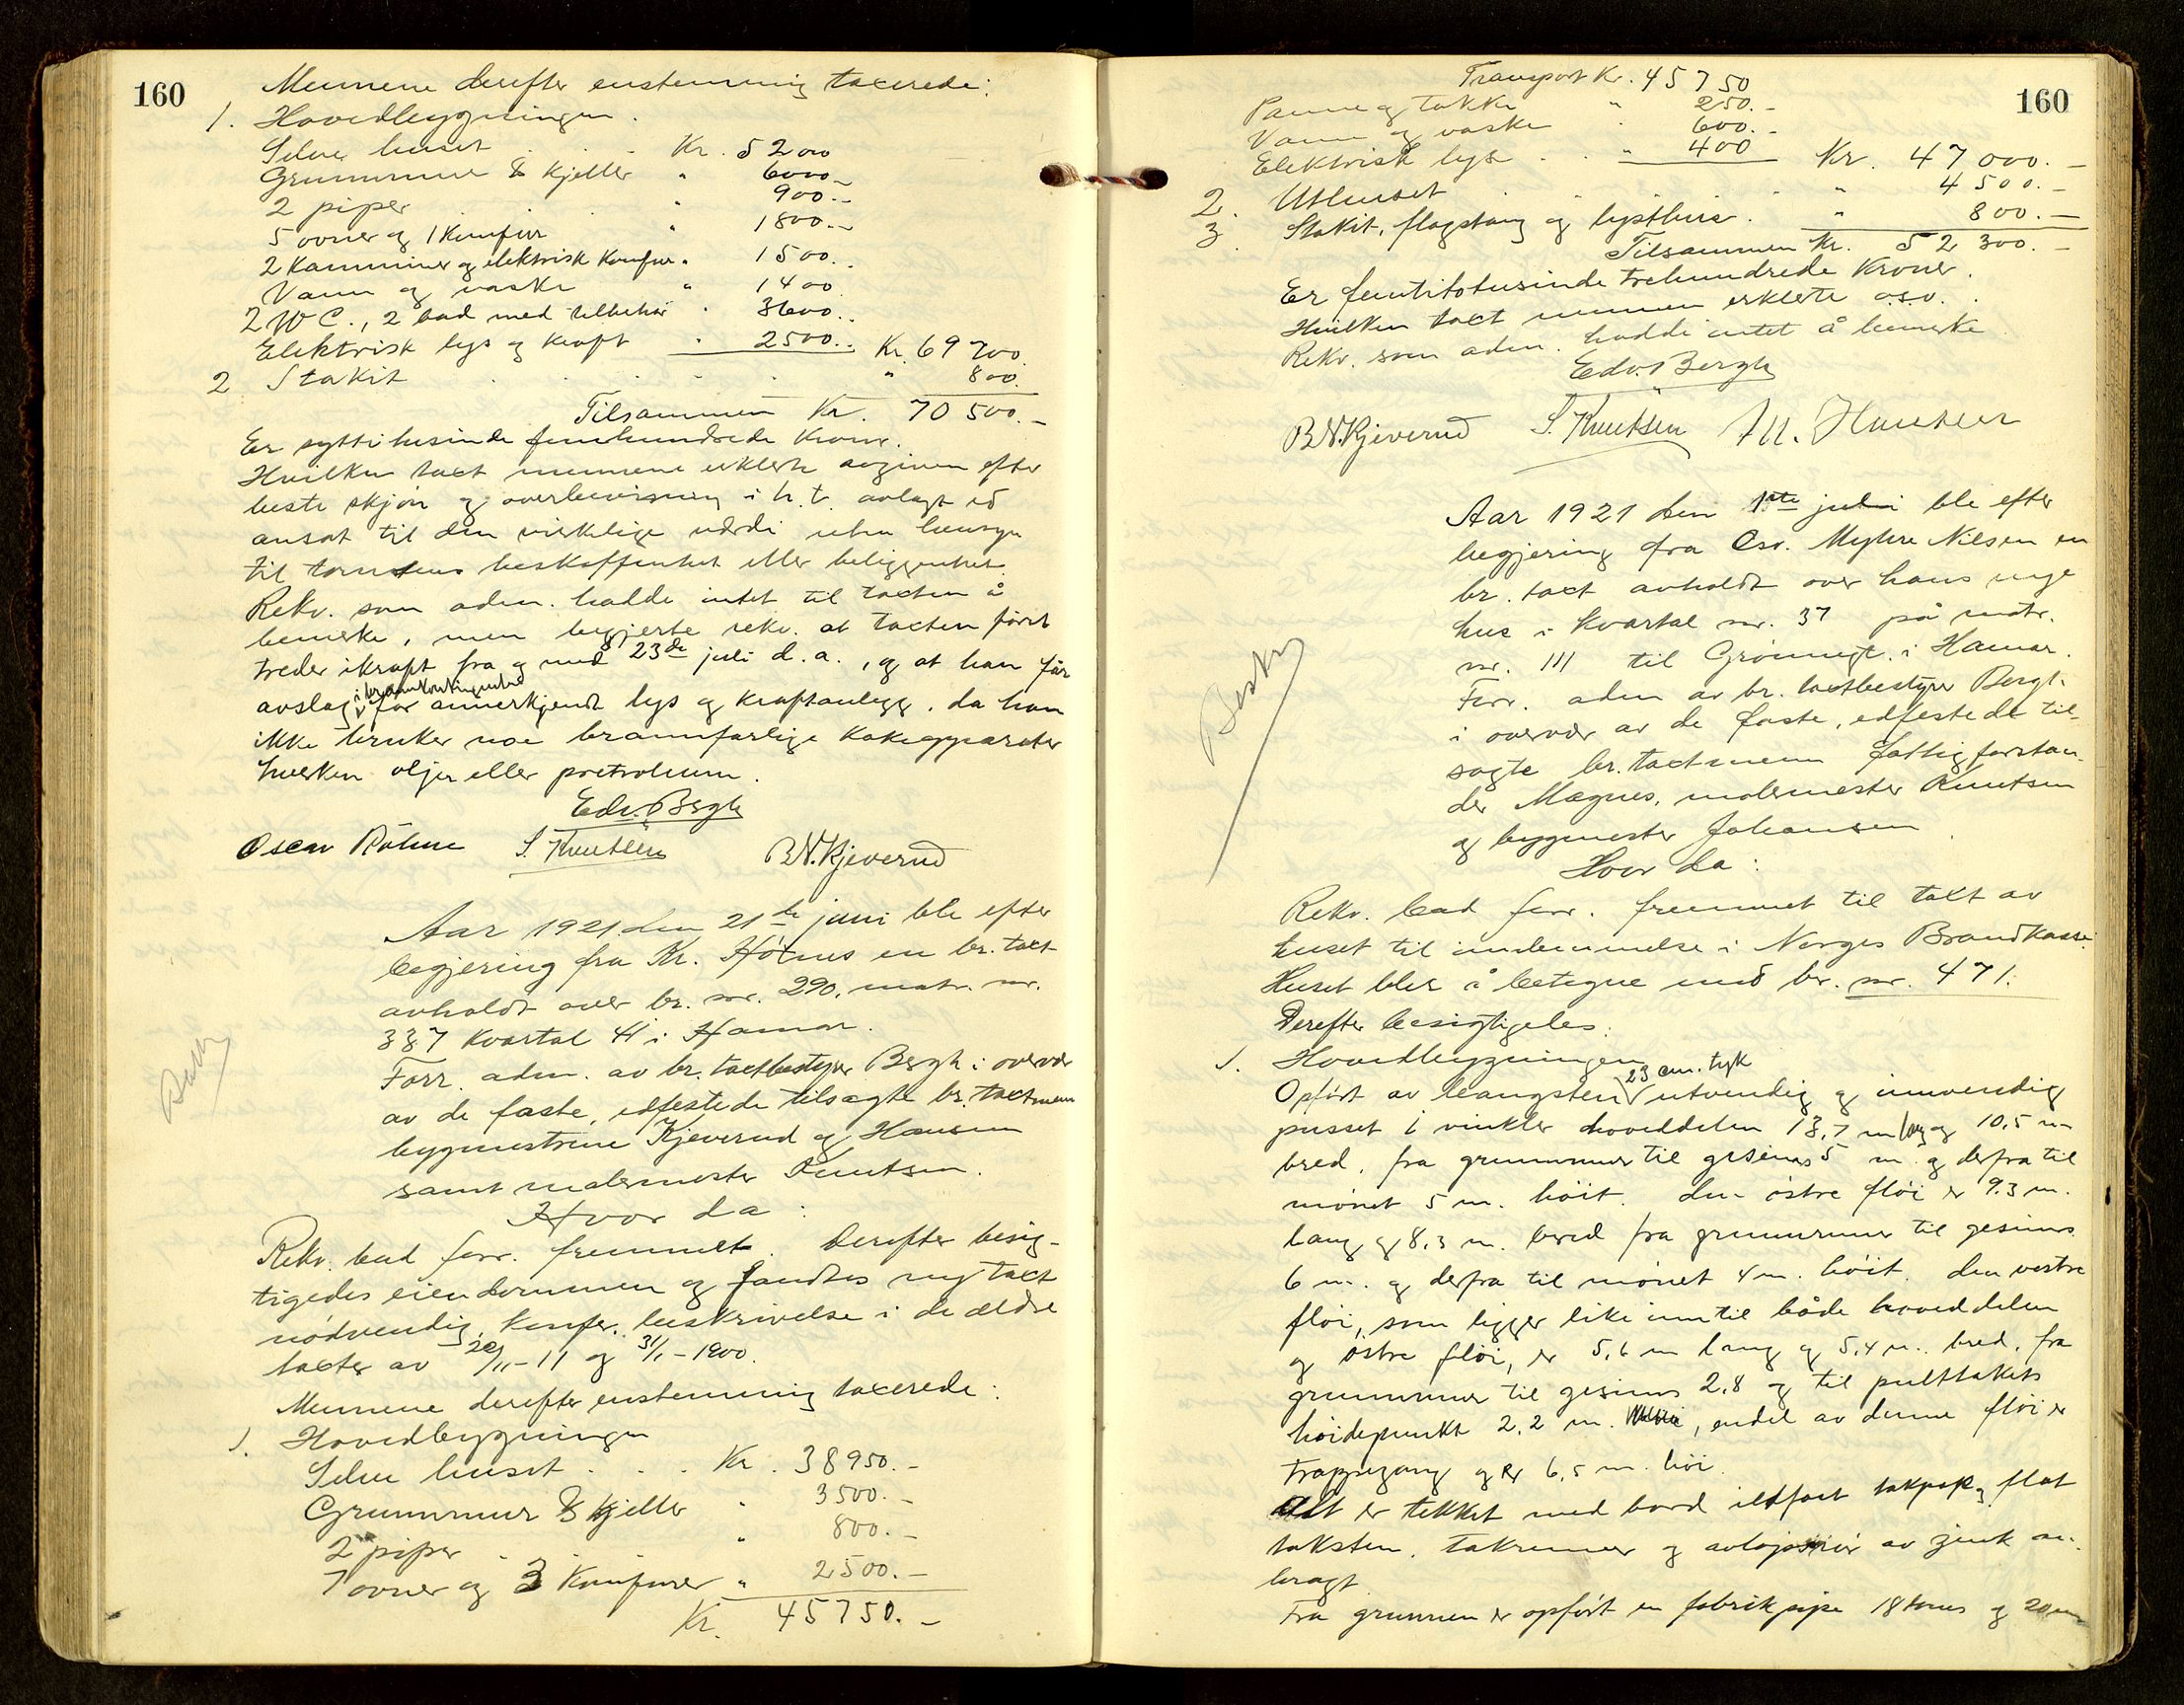 160
Mennene derefter enstemmig taxerede:
1. Hovedbygningen.
Selve huset . . . Kr. 52000
Grunnmur & kjeller " 6000.-
2 piper . . " 900.-
5 ovner og 1 komfur " 1800.-
2 Kaminer og elektrisk komfur " 1500.-
Vann og vaske " 1400
2 W C., 2 bad med tilbehör " 3600.-
Elektrisk lys og kraft " 2500.- Kr. 69700.
2 Stakit . . . . . " 800.
Tilsammen Kr. 70500.-
Er sytti tusinde femhundrede kroner.
Hvilken taxt mennene erklerte avgiven efter
beste skjön og overbevisning i h.t. avlagt ed
ansat til den virkelige værdi uten hensyn
til tomtens beskaffenhet eller beliggenhet.
Rekv. som adm. hadde intet til taxten å
bemerke, men begjerte rekv. at taxten först
treder ikraft fra og med 23de juli d.a., og at han får
avslag i brannkontingented for annerkjendt lys og kraftanlegg, da han
ikke bruker noe brannfarlige kokeapparater
hverken oljer eller poetroleum.
Edv. Bergh
Oscar Röhne S. Knutsen B.N. Kjeverud
Aar 1921 den 21de juni ble efter
begjering fra Kr. Hötnes en br. taxt
avholdt over br. nr. 290, matr. nr.
337 kvartal 41 i Hamar.
Forr. adm. av br. taxtbestyrer Bergh i overvær
av de faste, edfestede tilsagte br. taxtmenn
bygmestrene Kjeverud og Hansen
samt malermester Knutsen.
Hvor da:
Rekv. bad forr. fremmet. Derefter besig-
tigedes eiendommen og fandtes ny taxt
nödvendig, konfer. beskrivelse i de ældre
taxter av 20/11-11 og 31/1-1900.
Mennene derefter enstemmig taxerede:
1. Hovedbygningen
Selve huset . . . Kr. 38950.-
Grunnmur & kjeller " 3500.-
2 piper . . " 800.-
7 ovner og 3 Komfurer " 2500.-
Kr. 45750.-
160
Transport Kr. 45750
Panne og takke " 250.-
Vann og vaske " 600.-
Elektrisk lys . . " 400 Kr. 47000.-
2. Uthuset . . . . " 4500.-
3. Stakit, flagstang og lysthus. " 800.-
Tilsammen Kr. 52300.-
Er femtitotusinde trehundrede Kroner.
Hvilken taxt mennen erklerte o.s.v.
Rekv. som adm. hadde intet å bemerke
Edv. Bergh
B.N. Kjeverud S. Knutsen M. Hansen
Aar 1921 den 1ste juli ble efter
begjering fra Osv. Myhre Nilsen en
br. taxt avholdt over hans nye
hus i kvartal nr. 37 på matr.
nr. 111 til Grönnegt. i Hamar.
Forr. adm av br. taxtbestyrer Bergh
i overvær av de faste, edfestede til-
sagte br. taxtmenn fattigforstan-
der Magnes, malermester Knutsen
og bygmester Johansen.
Hvor da:
Rekv. bad forr. fremmet til taxt av
huset til innlemmelse i Norges Brandkasse.
Huset blir å betegne med br. nr. 471.
Derefter besigtigedes:
1. Hovedbygningen
Opfört av leangsten 23 cm. tyk utvendig og innvendig
pusset i vinkler hoveddelen 13,7 m lang og 10,5 m
bred, fra grunnmur til gesims 5 m. og derfra til
mönet 5 m. höit. den östre flöi er 9.3 m.
lang og 8,3 m. bred fra grunnmur til gesims
6 m. og derfra til mönet 4 m. höit. den vestre
flöi, som ligger like inntil både hoveddelen
og östre flöi, er 5,6 m lang og 5,4 m. bred, fra
grunnmur til gesims 2,8 og til pulttakets
höidepunkt 2,2 m. , endel av denne flöi er
trappegang og er 6,5 m. höi.
Alt er tekket med bord ildfast takpap og flat
taksten. Takrenner og avlöpsrör av zink an-
bragt.
Fra grunnen er opfört en fabrikpipe 18 toms og 20 m